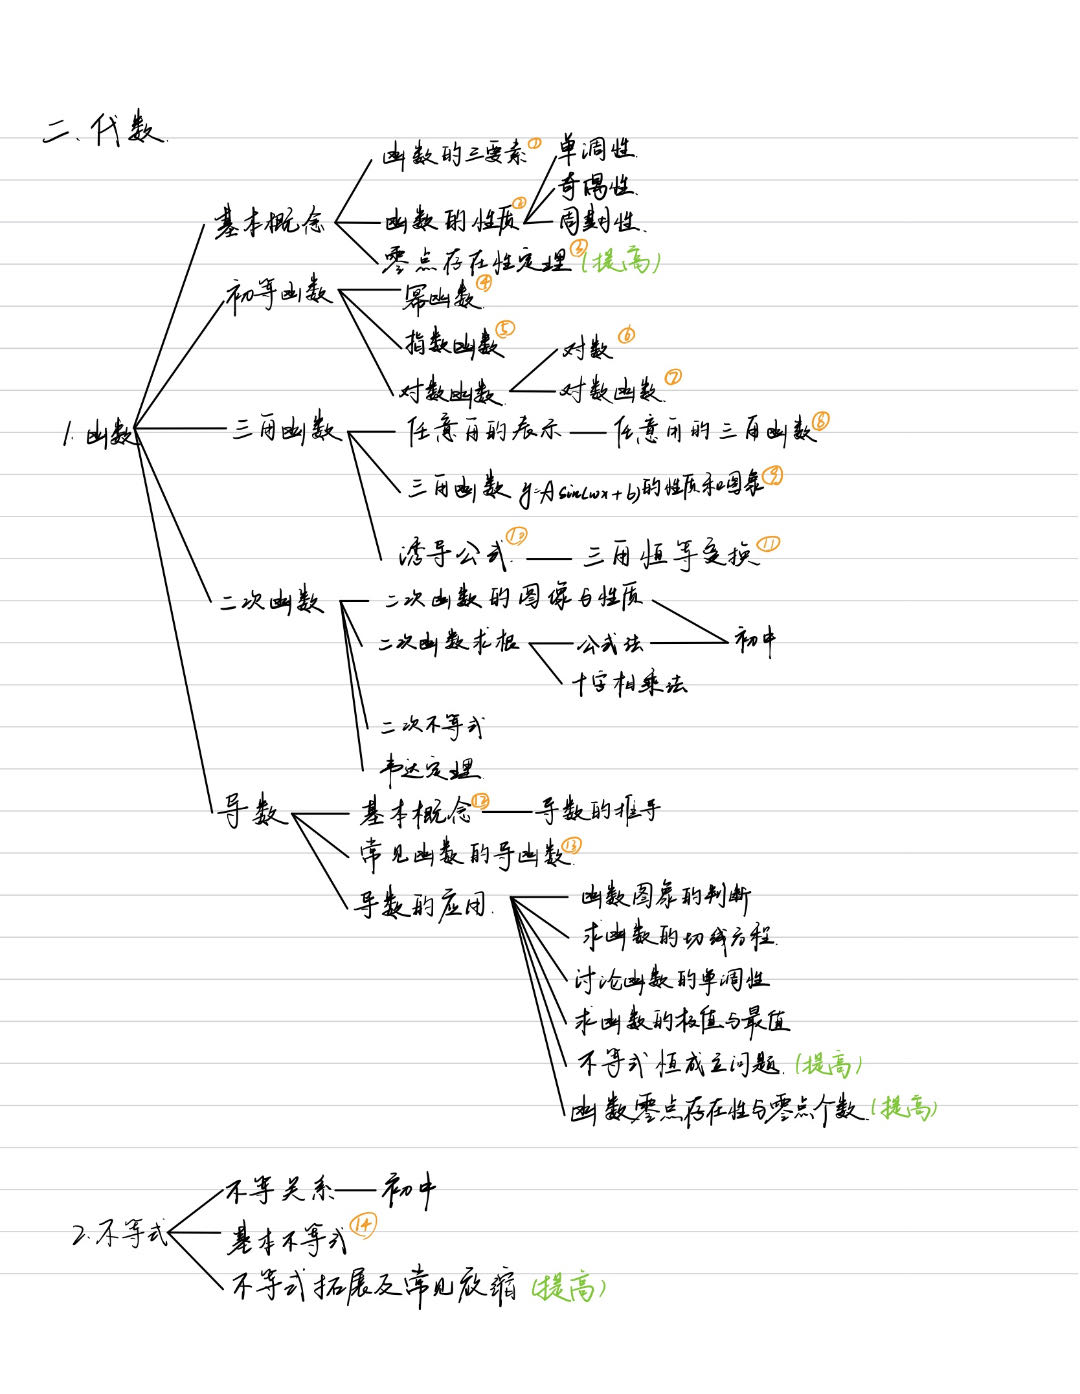 二.代数.
函数的三要素① 单调性.
奇偶性.
基本概念 函数的性质② 周期性.
零点存在性定理③(提高)
初等函数 幂函数④
指数函数⑤ 对数⑥
对数函数 对数函数⑦
1.函数 三角函数 任意角的表示 任意角的三角函数⑧
三角函数 y=Asin(ωx+b)的性质和图象⑨
诱导公式.⑩ 三角恒等变换⑪
二次函数 二次函数的图像与性质
二次函数求根 公式法 初中
十字相乘法
二次不等式
韦达定理
导数 基本概念⑫ 导数的推导
常见函数的导函数⑬
导数的应用. 函数图象的判断
求函数的切线方程.
讨论函数的单调性
求函数的极值与最值
不等式恒成立问题.(提高)
函数零点存在性与零点个数.(提高)
不等关系 初中
2.不等式 基本不等式⑭
不等式拓展及常见放缩(提高)